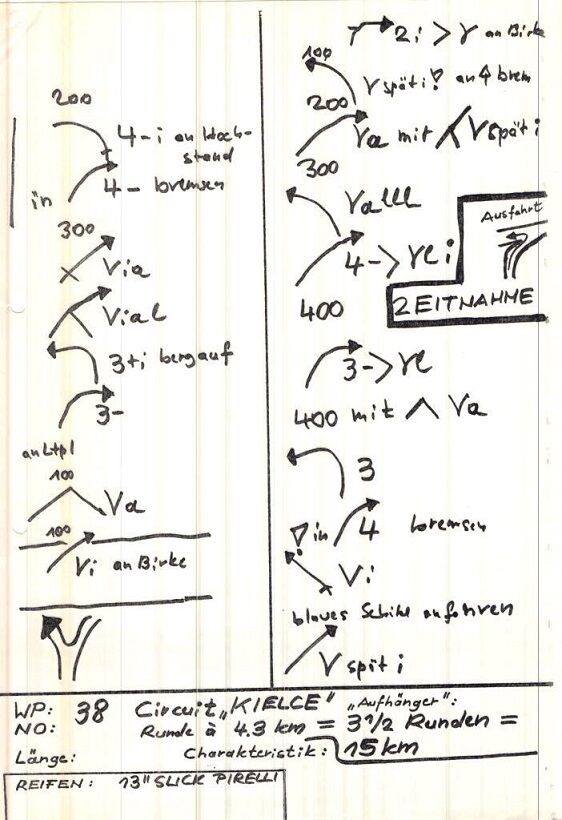 200
4- i an Hoch-
stand
4- bremsen
in
300
Via
Vial
3+i bergauf
3-
an Ltpl
100
Va
100
Vi an Birke
2i > r an Birke
100
V spät i! an brem
200
Va mit V spät i
300
Valll
Ausfahrt
4-> rl i
400
ZEITNAHME
3-> rl
400 mit Va
3
in 4 bremsen
Vi
blaues Schild anfahren
V spät i
WP: 38 Circuit „KIELCE" „Aufhänger":
NO: Runde à 4.3 km = 3 1/2 Runden =
Länge: Charakteristik: 15 km
REIFEN: 13" SLICK PIRELLI